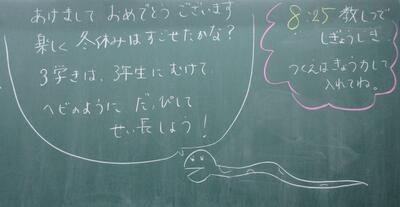 あけまして おめでとう ございます
楽しく 冬休みはすごせたかな？
3学きは、3年生にむけて、
ヘビのように だっぴして
せい長しよう！
8:25 教しつで
しぎょうしき。
つくえはきょう力して
入れてね。